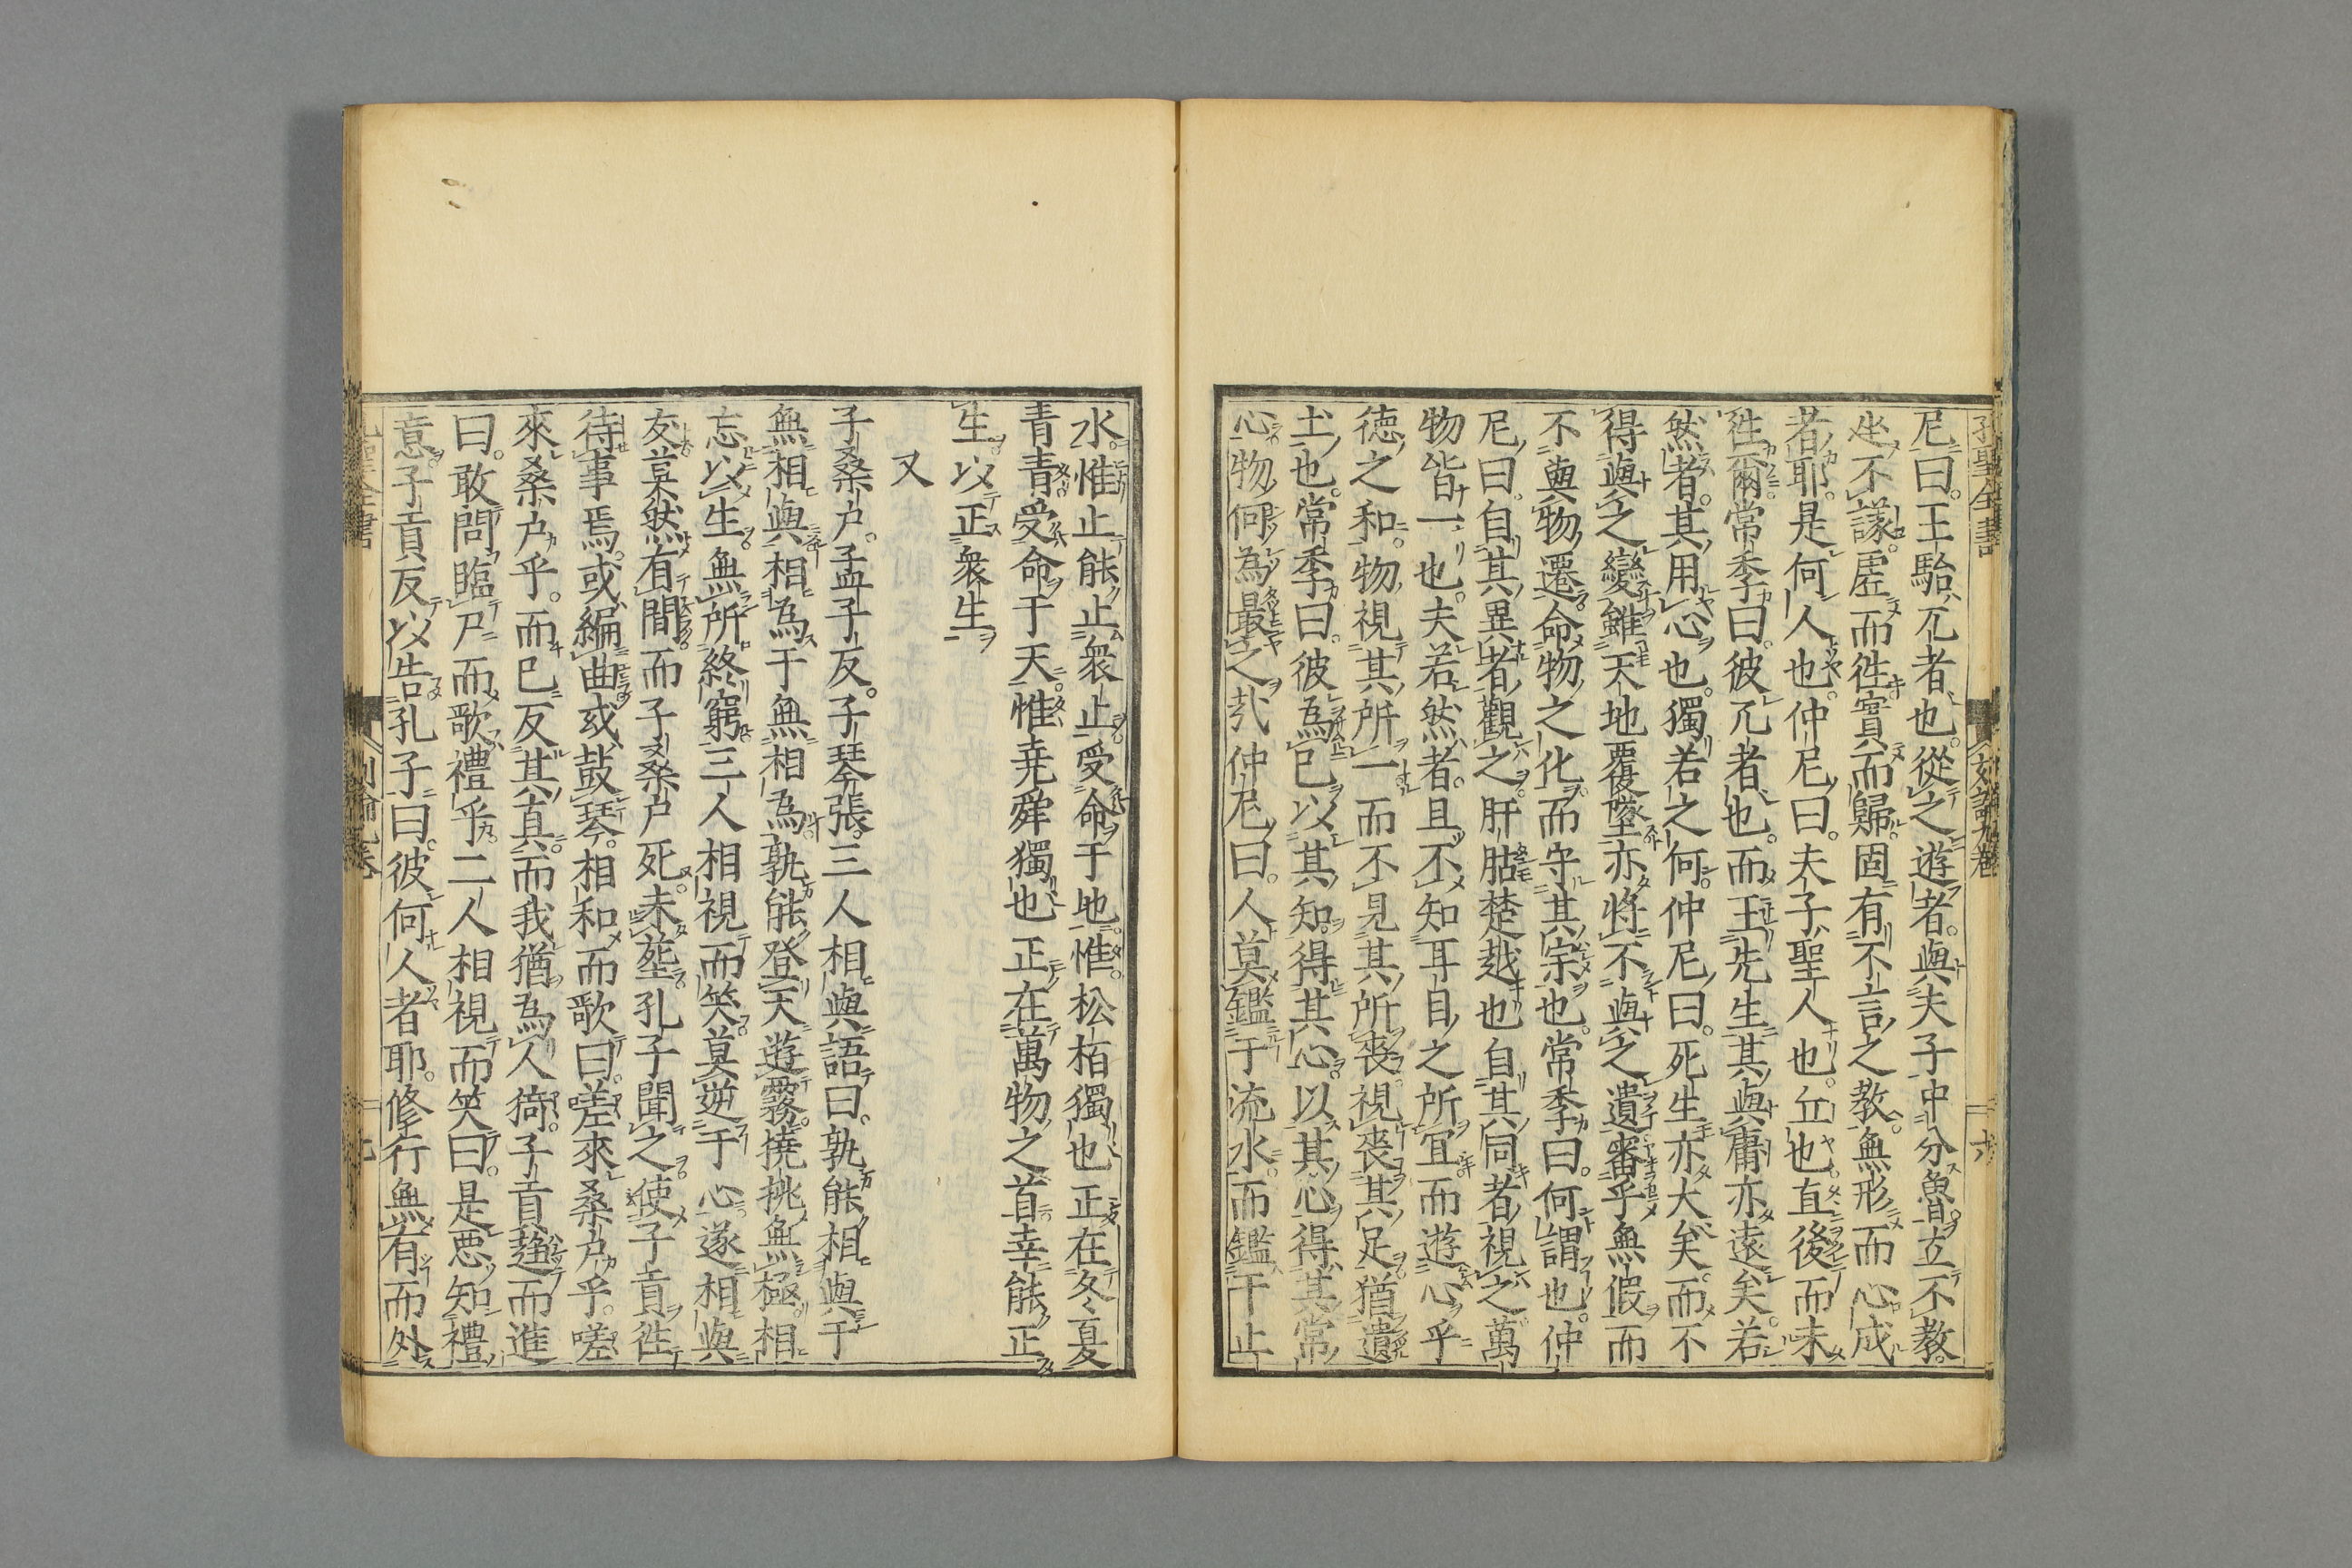 孔聖全書
尼曰。王駘兀者也。從之遊者。與夫子中分魯立不教。
坐不議。虛而徃實而歸。固有不言之教。無形而心成
者耶。是何人也。仲尼曰。夫子聖人也。丘也。直後而未
徃爾。常季曰。彼兀者也。而王先生其與庸亦遠矣。若
然者。其用心也。獨若之何。仲尼曰。死生亦大矣。而不
得與之變雖天地覆墜亦將不與之遺審乎無假而
不與物遷命物之化而守其宗也。常季曰。何謂也。仲
尼曰。自其異者觀之肝膽楚越也自其同者視之萬
物皆一也。夫若然者。且不知耳目之所宜而遊心乎
德之和。物視其所一而不見其所喪。視喪其足猶遺
土也。常季曰。彼為己以其知。得其心。以其心得其常
心物何為最之哉仲尼曰。人莫鑑于流水。而鑑于止
水。惟止能止衆止受命于地。惟松栢獨也正在冬夏
青青受命于天惟尭舜獨也正在萬物之首幸能正
生。以正衆生
又
子桑户。孟子反。子琴張。三人相與語曰。孰能相與于
無相與相為于無相為孰能登天遊霧撓挑無極相
忘以生無所終窮三人相視而笑莫逆于心遂相與
友莫然有間而子桑户死。未塟孔子聞之。使子貢徃
待事焉。或編曲或鼓琴。相和而歌曰。嗟來桑户乎。嗟
來桑户乎。而已反其真。而我猶為人猗。子貢趨而進
曰。敢問臨尸而歌禮乎。二人相視而笑曰。是惡知禮
意。子貢反以告孔子曰。彼何人者耶。修行無有而外